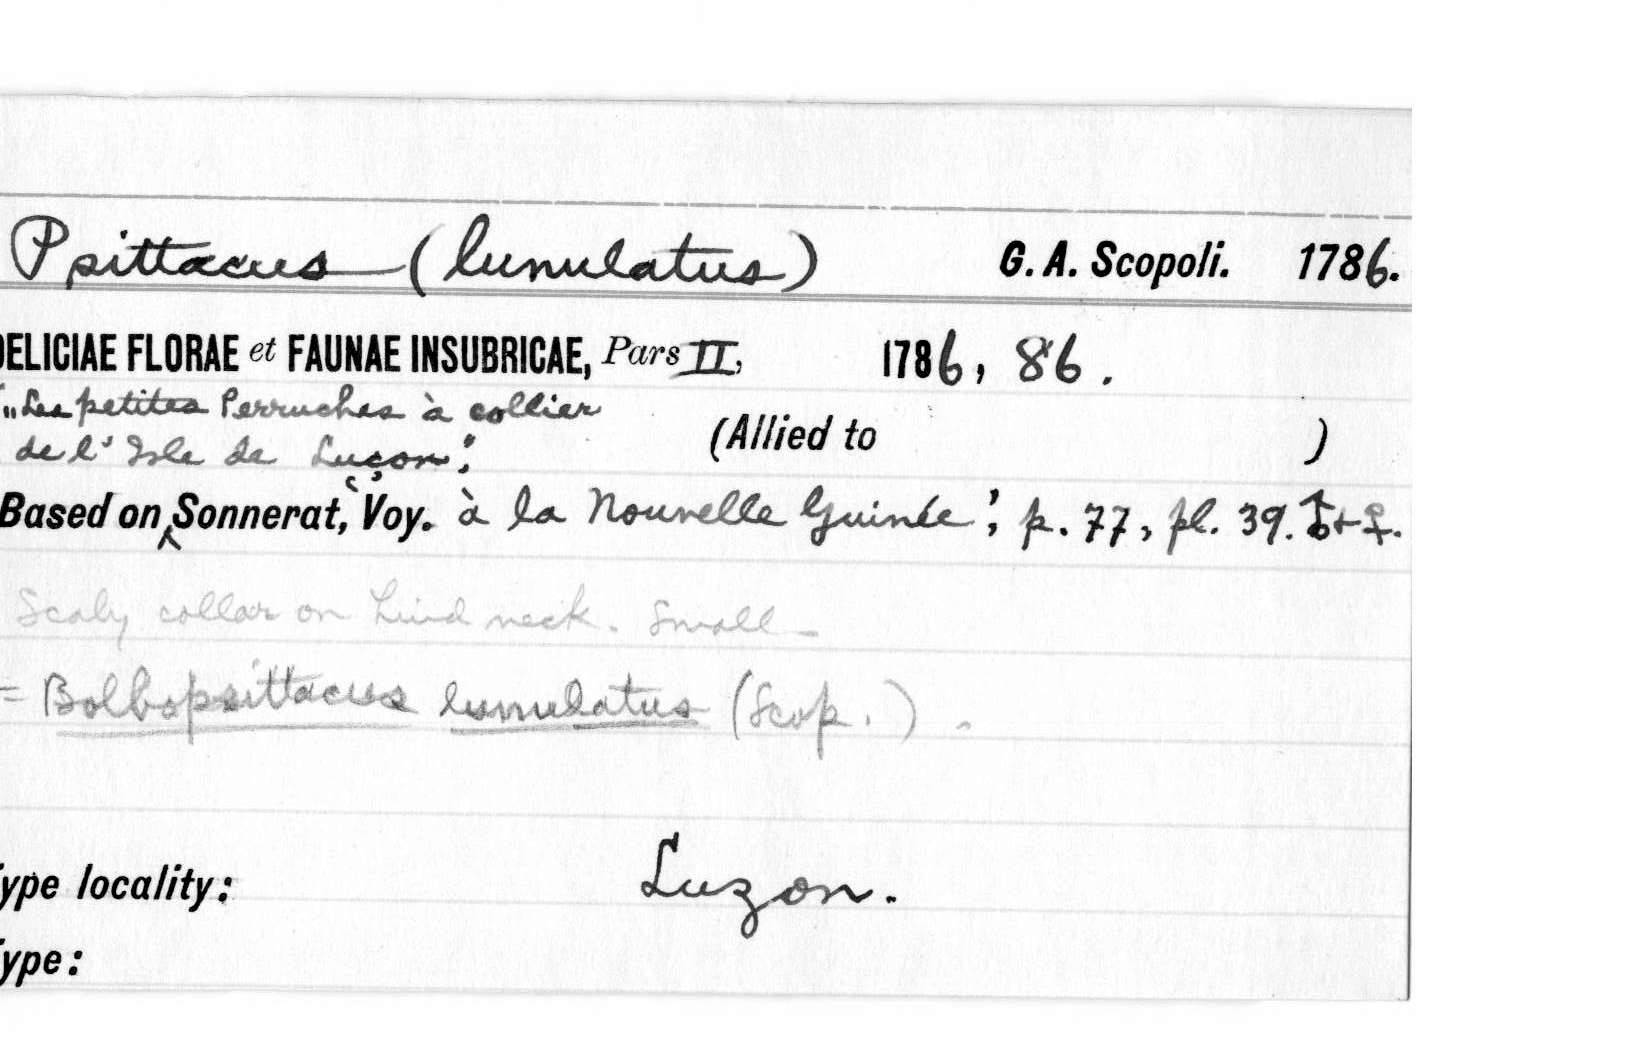 Psittacus (lunulatus) G. A. Scopoli. 1786.
DELICIAE FLORAE et FAUNAE INSUBRICAE, Pars II, 1786, 86.
„Les petites Perruches à collier
de l' Isle de Luçon", (Allied to )
Based on Sonnerat, 'Voy. à la Nouvelle Guinée', p. 77, pl. 39. ♂+♀.
Scaly collar on hind neck. Small.
= Bolbopsittacus lunulatus (Scop.).
ype locality: Luzon.
ype: